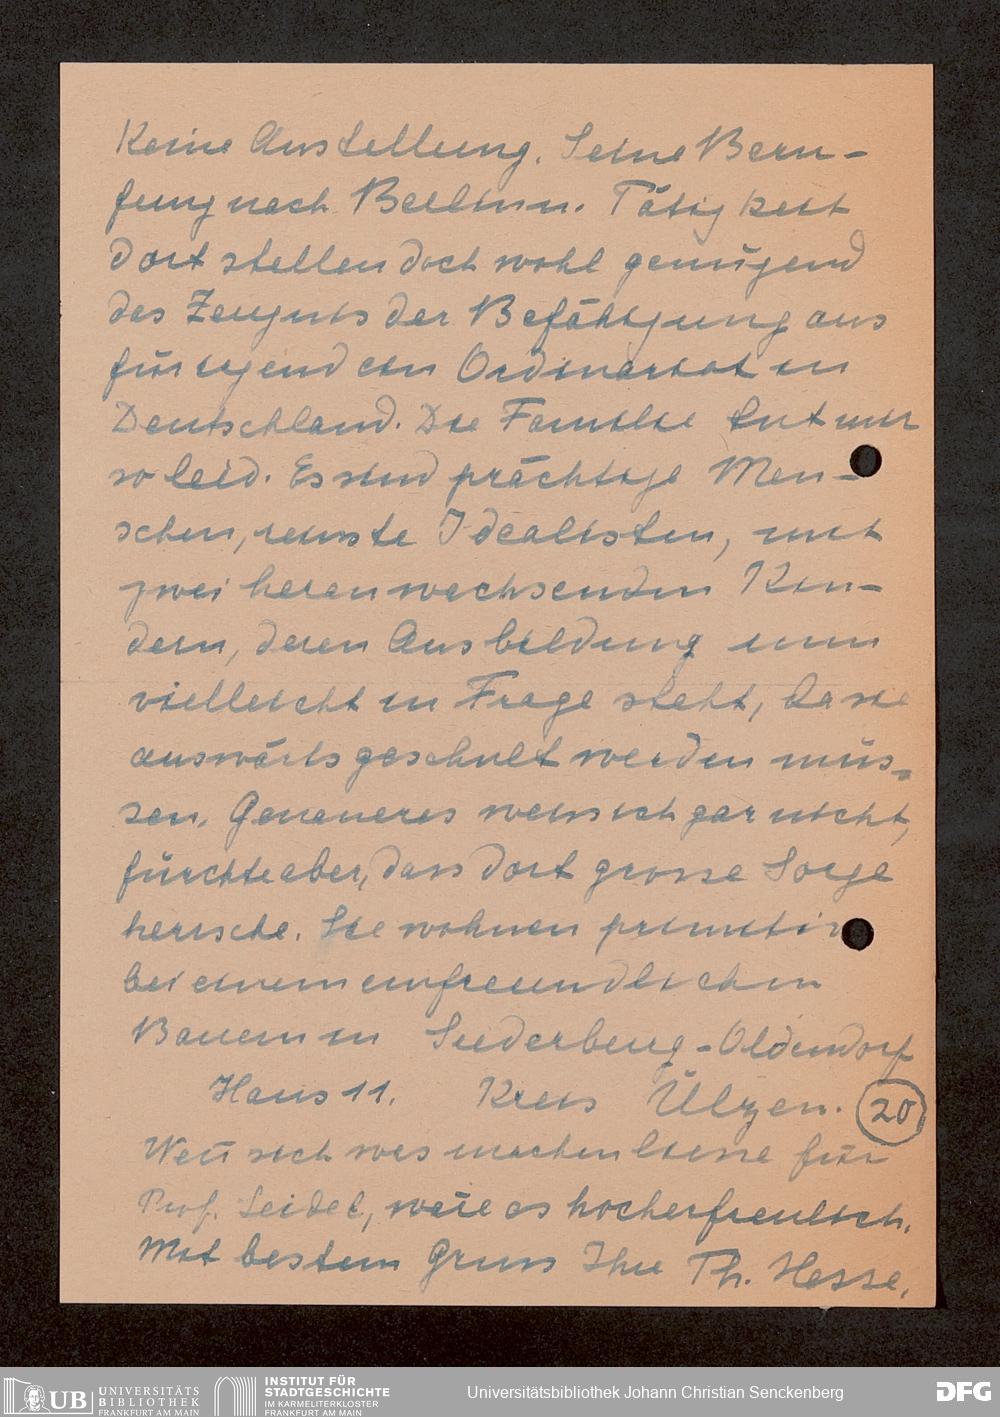 Keine Anstellung. Seine Beru-
fung nach Berlin u. Tätigkeit
dort stellen doch wohl genügend
das Zeugnis der Befähigung aus
für irgend ein Ordinariat in
Deutschland. Die Familie tut mir
so leid. Es sind prächtige Men-
schen, reinste Idealisten, mit
zwei heranwachsenden Kin-
dern, deren Ausbildung nun
vielleicht in Frage steht, da sie
auswärts geschult werden müs-
sen. Genaueres weiss ich gar nicht,
fürchte aber, dass dort grosse Sorge
herrsche. Sie wohnen primitiv
bei einem unfreundlichen
Bauern in Suderburg-Oldendorf
Haus 11. Kreis Ülzen. 20
Wen̄ sich was machen liesse für
Prof. Seidel, wäre es hocherfreulich.
Mit bestem Gruss Ihre Th. Hesse.
UB UNIVERSITÄTS
BIBLIOTHEK
FRANKFURT AM MAIN
INSTITUT FÜR
STADTGESCHICHTE
IM KARMELITERKLOSTER
FRANKFURT AM MAIN
Universitätsbibliothek Johann Christian Senckenberg
DFG